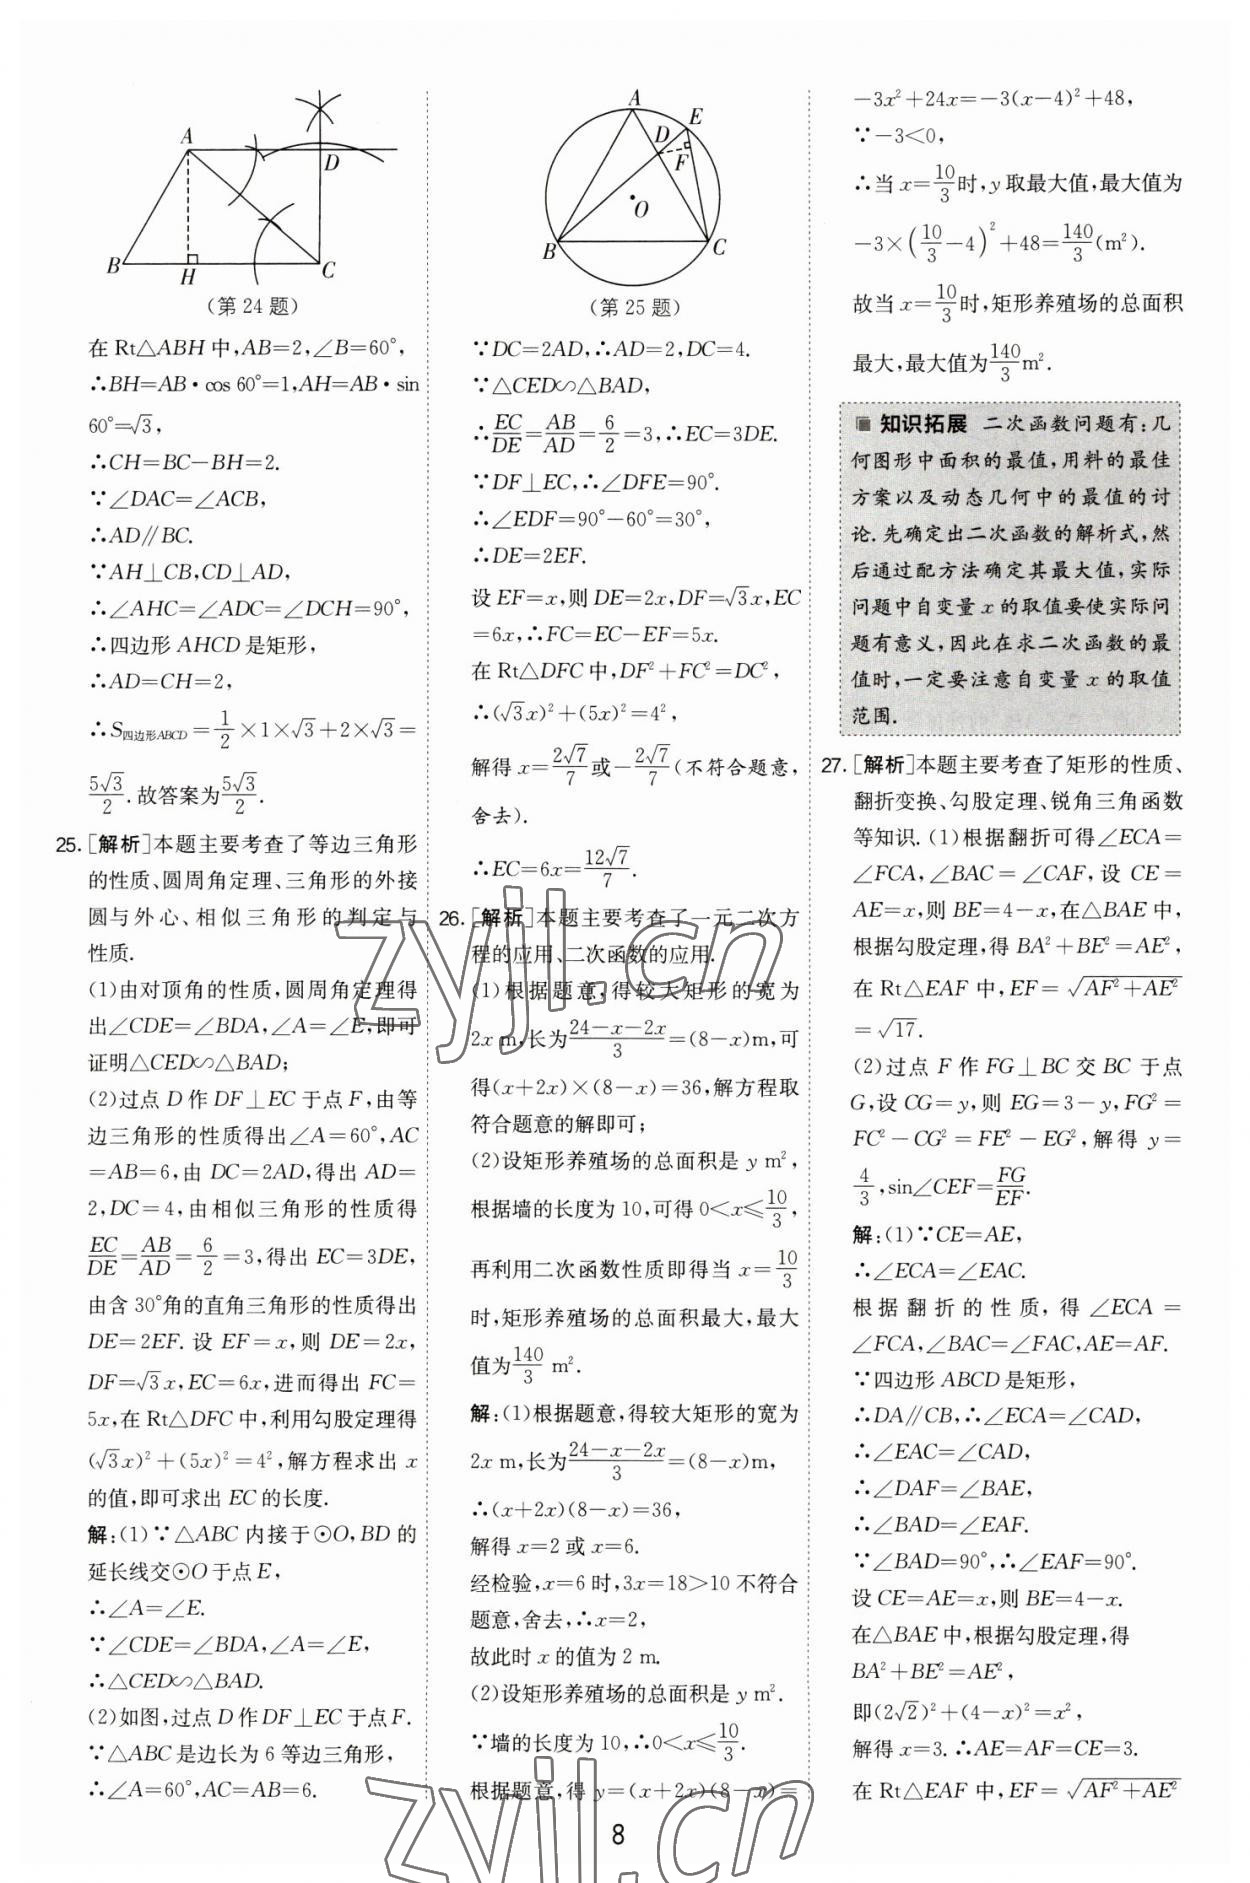 A
D
B
H
C
(第24题)
在Rt△ABH中,AB=2,∠B=60°,
∴BH=AB·cos 60°=1,AH=AB·sin
60°=√3,
∴CH=BC−BH=2.
∵∠DAC=∠ACB,
∴AD∥BC.
∵AH⊥CB,CD⊥AD,
∴∠AHC=∠ADC=∠DCH=90°,
∴四边形AHCD是矩形,
∴AD=CH=2,
∴S四边形ABCD=1/2×1×√3+2×√3=
5√3/2.故答案为5√3/2.
25.[解析]本题主要考查了等边三角形
的性质、圆周角定理、三角形的外接
圆与外心、相似三角形的判定与
性质.
(1)由对顶角的性质,圆周角定理得
出∠CDE=∠BDA,∠A=∠E,即可
证明△CED∽△BAD;
(2)过点D作DF⊥EC于点F,由等
边三角形的性质得出∠A=60°,AC
=AB=6,由DC=2AD,得出AD=
2,DC=4,由相似三角形的性质得
EC/DE=AB/AD=6/2=3,得出EC=3DE,
由含30°角的直角三角形的性质得出
DE=2EF.设EF=x,则DE=2x,
DF=√3x,EC=6x,进而得出FC=
5x,在Rt△DFC中,利用勾股定理得
(√3x)²+(5x)²=4²,解方程求出x
的值,即可求出EC的长度.
解:(1)∵△ABC内接于⊙O,BD的
延长线交⊙O于点E,
∴∠A=∠E.
∵∠CDE=∠BDA,∠A=∠E,
∴△CED∽△BAD.
(2)如图,过点D作DF⊥EC于点F.
∵△ABC是边长为6等边三角形,
∴∠A=60°,AC=AB=6.
A
E
D
F
O
B
C
(第25题)
∵DC=2AD,∴AD=2,DC=4.
∵△CED∽△BAD,
∴EC/DE=AB/AD=6/2=3,∴EC=3DE.
∵DF⊥EC,∴∠DFE=90°.
∴∠EDF=90°−60°=30°,
∴DE=2EF.
设EF=x,则DE=2x,DF=√3x,EC
=6x,∴FC=EC−EF=5x.
在Rt△DFC中,DF²+FC²=DC²,
∴(√3x)²+(5x)²=4²,
解得x=2√7/7或−2√7/7(不符合题意,
舍去).
∴EC=6x=12√7/7.
26.[解析]本题主要考查了一元二次方
程的应用、二次函数的应用.
(1)根据题意,得较大矩形的宽为
2x m,长为(24−x−2x)/3=(8−x)m,可
得(x+2x)×(8−x)=36,解方程取
符合题意的解即可;
(2)设矩形养殖场的总面积是y m²,
根据墙的长度为10,可得0<x≤10/3,
再利用二次函数性质即得当x=10/3
时,矩形养殖场的总面积最大,最大
值为140/3 m².
解:(1)根据题意,得较大矩形的宽为
2x m,长为(24−x−2x)/3=(8−x)m,
∴(x+2x)(8−x)=36,
解得x=2或x=6.
经检验,x=6时,3x=18>10不符合
题意,舍去,∴x=2,
故此时x的值为2 m.
(2)设矩形养殖场的总面积是y m².
∵墙的长度为10,∴0<x≤10/3.
根据题意,得y=(x+2x)(8−x)=
−3x²+24x=−3(x−4)²+48,
∵−3<0,
∴当x=10/3时,y取最大值,最大值为
−3×(10/3−4)²+48=140/3(m²).
故当x=10/3时,矩形养殖场的总面积
最大,最大值为140/3m².
知识拓展 二次函数问题有:几
何图形中面积的最值,用料的最佳
方案以及动态几何中的最值的讨
论.先确定出二次函数的解析式,然
后通过配方法确定其最大值,实际
问题中自变量x的取值要使实际问
题有意义,因此在求二次函数的最
值时,一定要注意自变量x的取值
范围.
27.[解析]本题主要考查了矩形的性质、
翻折变换、勾股定理、锐角三角函数
等知识.(1)根据翻折可得∠ECA=
∠FCA,∠BAC=∠CAF,设CE=
AE=x,则BE=4−x,在△BAE中,
根据勾股定理,得BA²+BE²=AE²,
在Rt△EAF中,EF=√(AF²+AE²)
=√17.
(2)过点F作FG⊥BC交BC于点
G,设CG=y,则EG=3−y,FG²=
FC²−CG²=FE²−EG²,解得y=
4/3,sin∠CEF=FG/EF.
解:(1)∵CE=AE,
∴∠ECA=∠EAC.
根据翻折的性质,得∠ECA=
∠FCA,∠BAC=∠FAC,AE=AF.
∵四边形ABCD是矩形,
∴DA∥CB,∴∠ECA=∠CAD,
∴∠EAC=∠CAD,
∴∠DAF=∠BAE,
∴∠BAD=∠EAF.
∵∠BAD=90°,∴∠EAF=90°.
设CE=AE=x,则BE=4−x.
在△BAE中,根据勾股定理,得
BA²+BE²=AE²,
即(2√2)²+(4−x)²=x²,
解得x=3.∴AE=AF=CE=3.
在Rt△EAF中,EF=√(AF²+AE²)
8
zyjl.cn
zyjl.cn